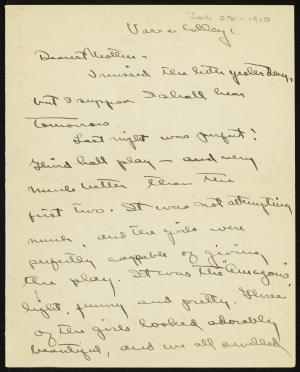 Feb 28-1910
Vassar College.
Dearest Mother -
I missed the letter yesterday,
but I suppose I shall hear
tomorrow
Last night was perfect!
Third hall play - and very
much better than the
first two. It was not attempting
much, and the girls were
perfectly capable of giving
the play. It was "The Amazons"
light, funny and pretty. Three
of the girls looked adorably
beautiful, and we all